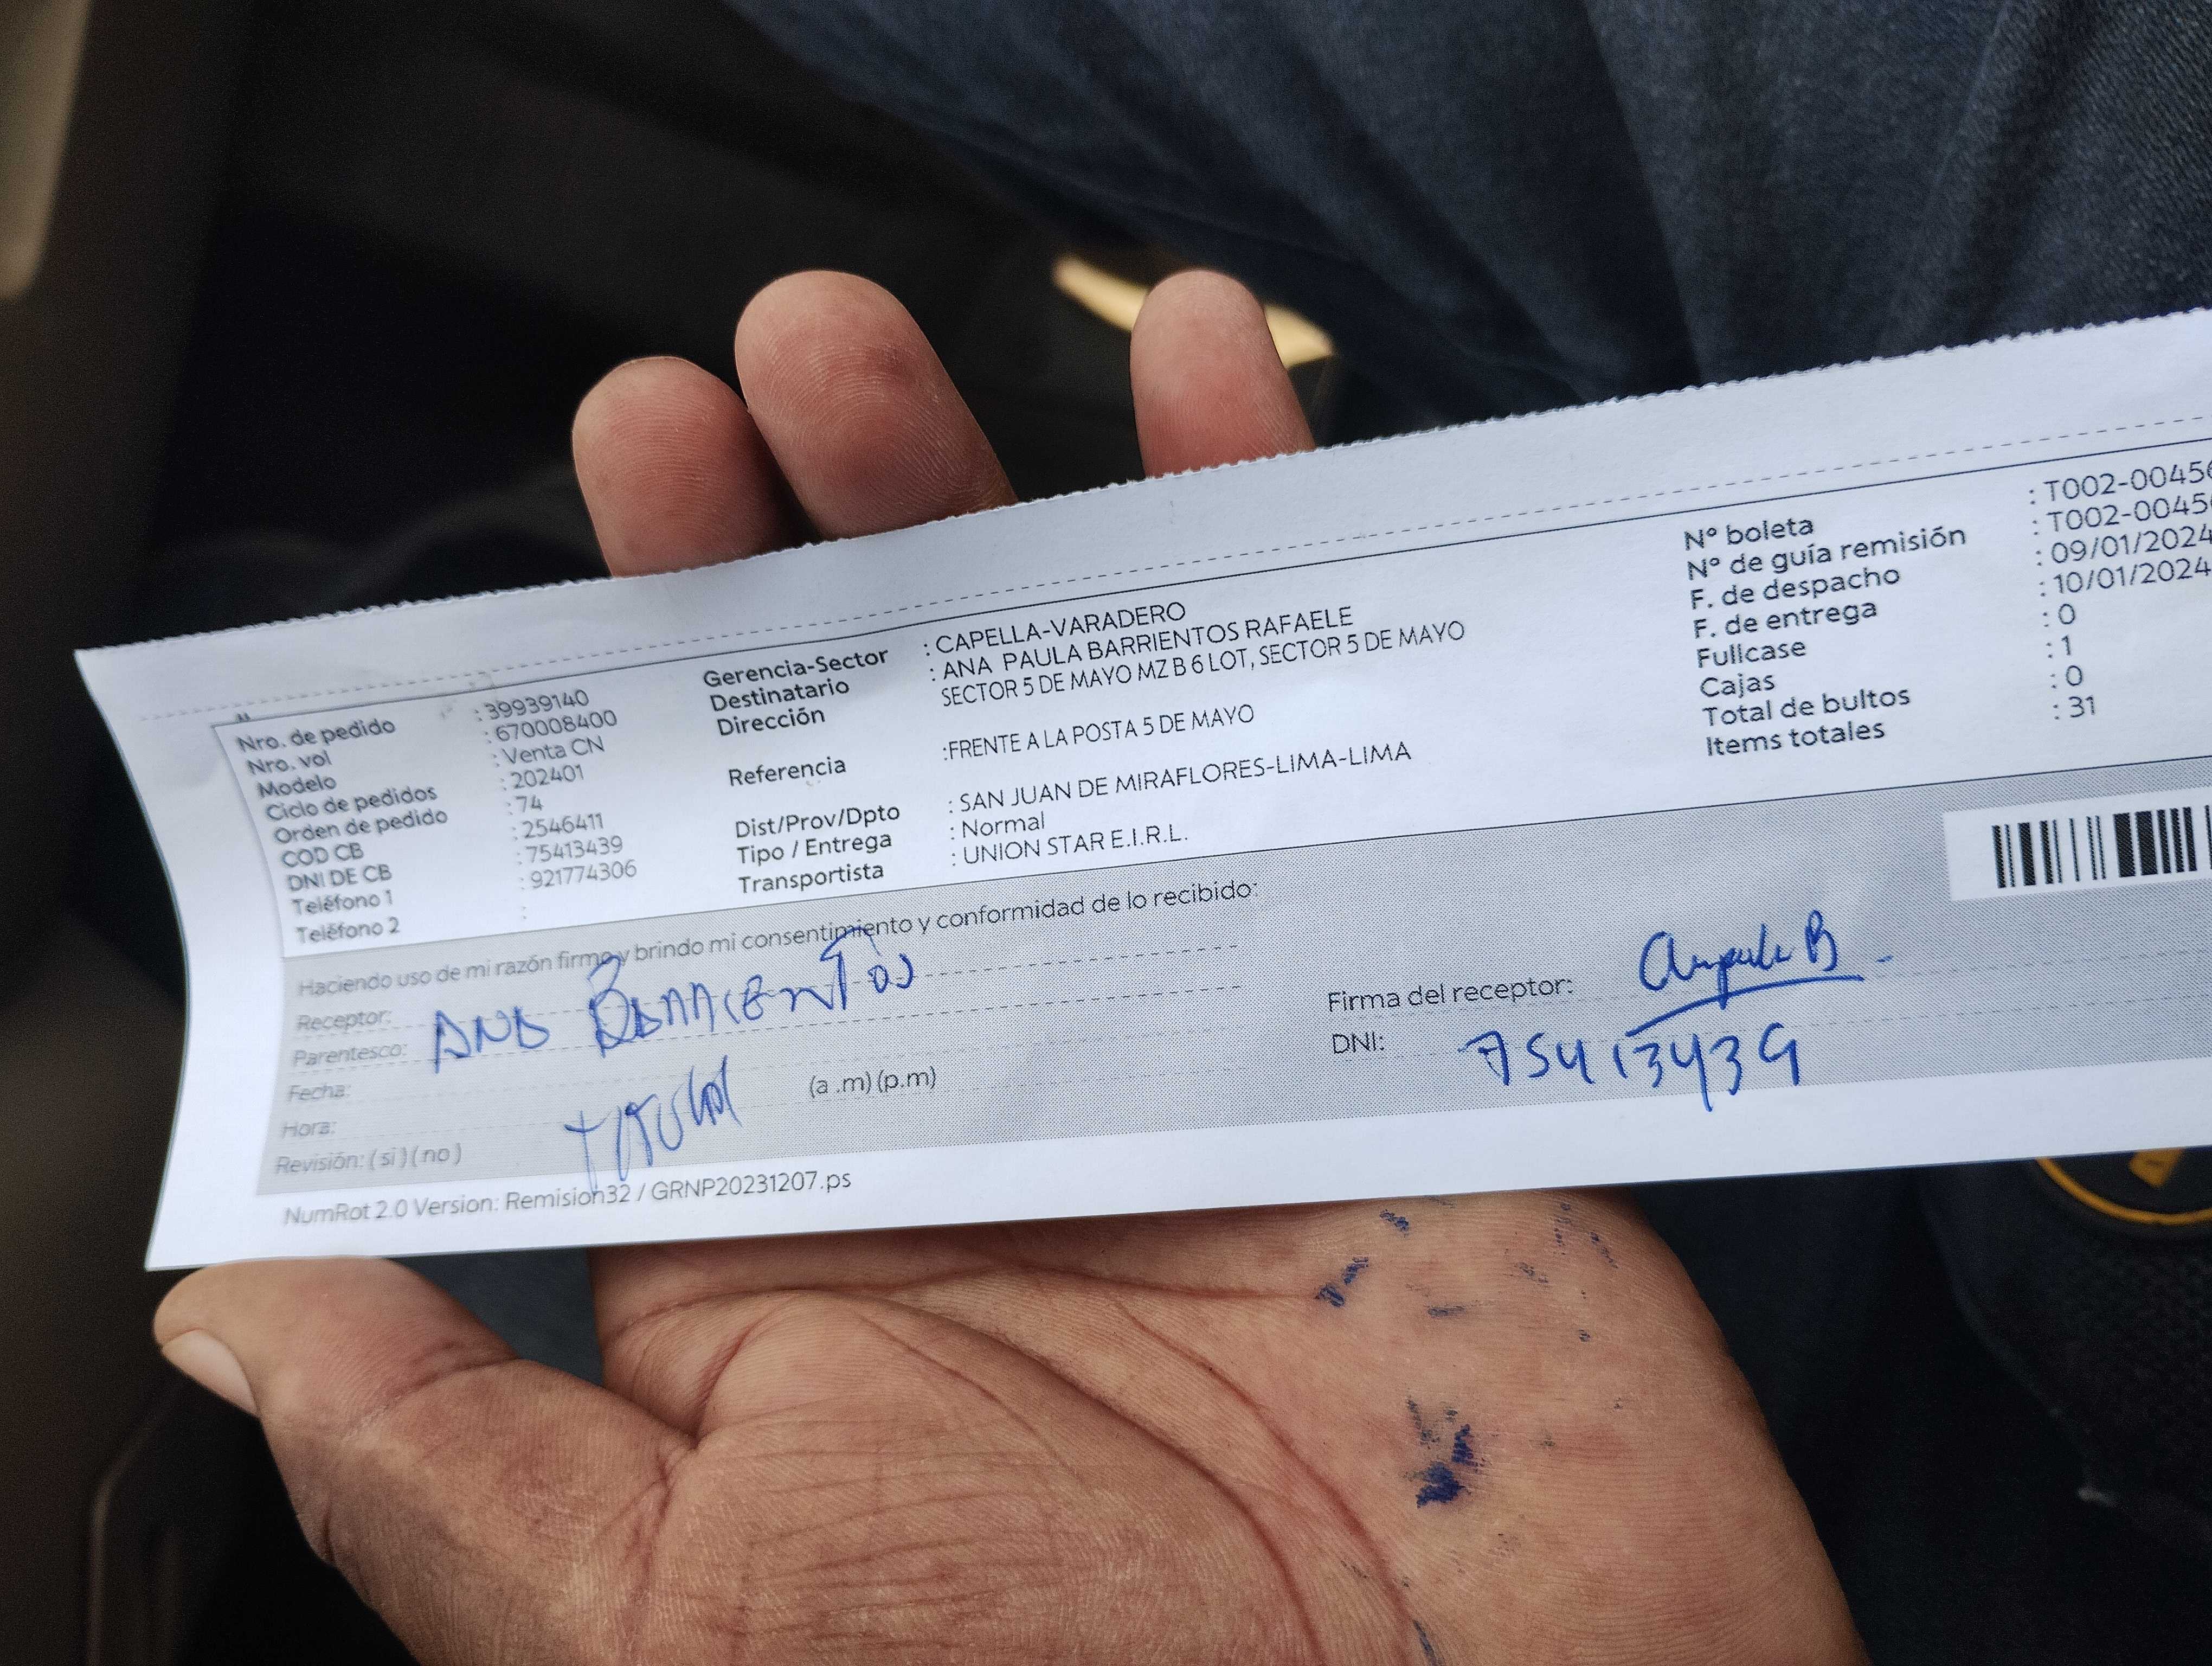 Nro. de pedido : 39939140
Nro. vol : 670008400
Modelo : Venta CN
Ciclo de pedidos : 202401
Orden de pedido : 74
COD CB : 2546411
DNI DE CB : 75413439
Teléfono 1 : 921774306
Teléfono 2 :
Gerencia-Sector : CAPELLA-VARADERO
Destinatario : ANA PAULA BARRIENTOS RAFAELE
Dirección SECTOR 5 DE MAYO MZ B 6 LOT, SECTOR 5 DE MAYO
Referencia :FRENTE A LA POSTA 5 DE MAYO
Dist/Prov/Dpto : SAN JUAN DE MIRAFLORES-LIMA-LIMA
Tipo / Entrega : Normal
Transportista : UNION STAR E.I.R.L.
Nº boleta : T002-0045
Nº de guía remisión : T002-0045
F. de despacho : 09/01/2024
F. de entrega : 10/01/2024
Fullcase : 0
Cajas : 1
Total de bultos : 0
Items totales : 31
Haciendo uso de mi razón firmo y brindo mi consentimiento y conformidad de lo recibido:
Receptor: Ana Barrientos
Parentesco:
Fecha:
Hora: (a .m) (p.m)
Revisión: ( si ) ( no )
Firma del receptor:
DNI: 75413439
NumRot 2.0 Version: Remision32 / GRNP20231207.ps